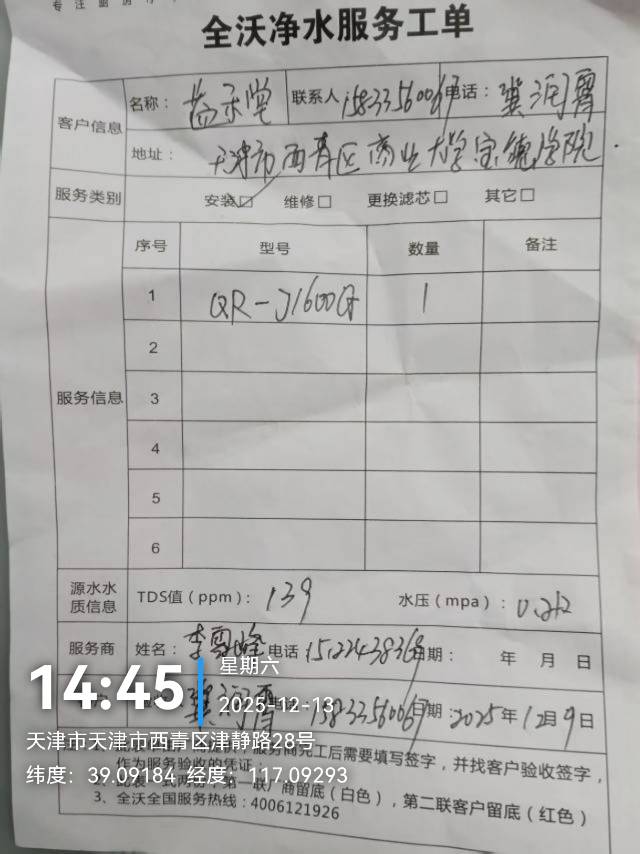 全沃净水服务工单
客户信息
名称：益禾堂 联系人15833560067 电话：冀润霄
地址：天津市西青区商业大学宝德学院
服务类别 安装□ 维修□ 更换滤芯□ 其它□
服务信息
序号 型号 数量 备注
1 QR-J1600G 1
2
3
4
5
6
源水水质信息 TDS值（ppm）：139 水压（mpa）：0.212
服务商 姓名：李雪峰 电话 15122438369 日期： 年 月 日
冀润霄 15833560067 日期：2025年12月9日
14:45
星期六
2025-12-13
天津市天津市西青区津静路28号
纬度：39.09184 经度：117.09293
服务商完工后需要填写签字，并找客户验收签字，
作为服务验收的凭证；
第一联厂商留底（白色），第二联客户留底（红色）
3、全沃全国服务热线：4006121926